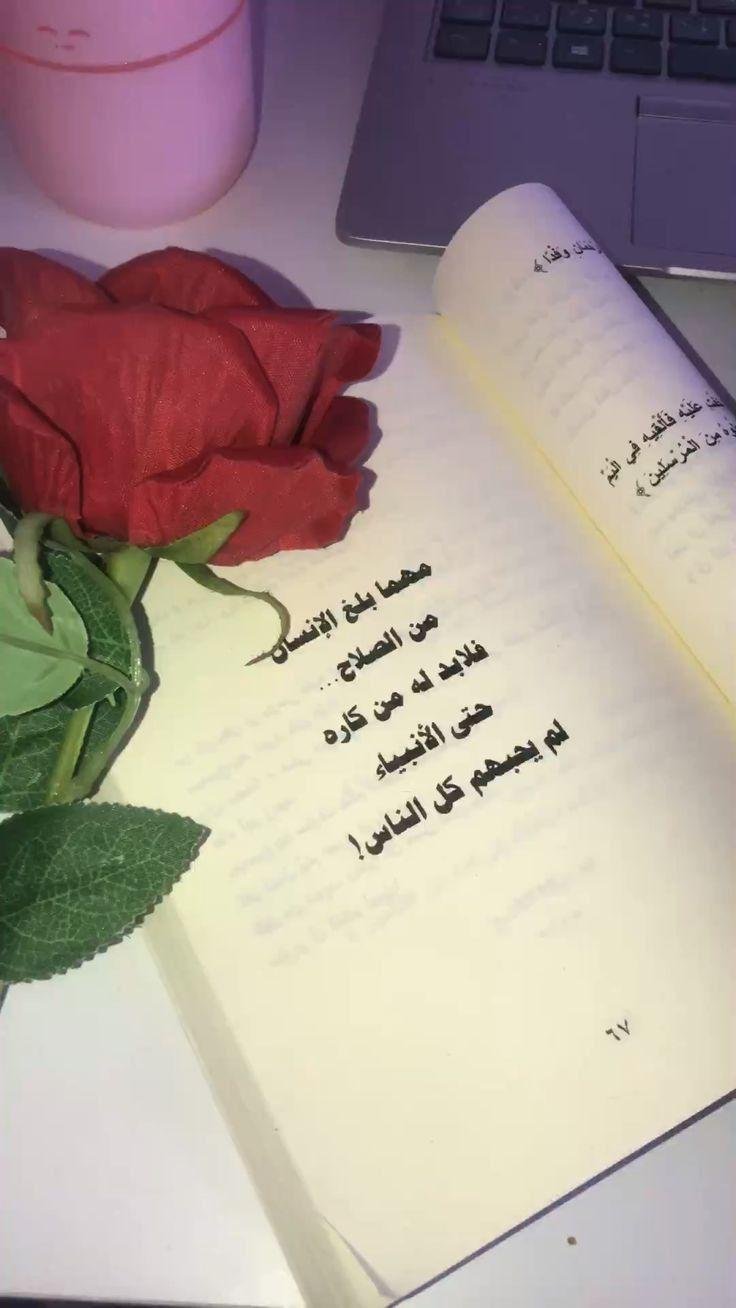 وَفْدًا ﴾
عَلَيْهِ فَأَلْقِيهِ فِي الْيَمِّ
مِنَ الْمُرْسَلِينَ ﴾
مهما بلغ الإنسان
من الصلاح...
فلابد له من كاره
حتى الأنبياء
لم يحبهم كل الناس!
٦٧